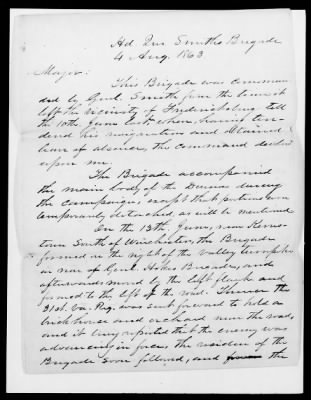 Hd Qrs Smiths Brigade
4 Aug. 1863
Major:
This Brigade was comman
ded by Genl. Smith from the time it
left the vicinity of Fredericksburg till
the 10th. when, having ten-
dered his resignation and obtained
leave of absence, the command devolved
upon me.
The Brigade accompanied
the main body of the Division during
the campaign, except that portions were
temporarily detached, as will be mentioned
On the 13th. June, near Kerns-
town South of Winchester, the Brigade
formed on the right of the Valley turnpike
in rear of Genl. Brigade, and
afterwards moved by the left flank and
formed to the left of the road. the
31st. Va. Reg. was sent forward to hold a
brick house and orchard near the road,
and it being reported that the enemy was
advancing in force, the residue of the
Brigade soon followed, and the